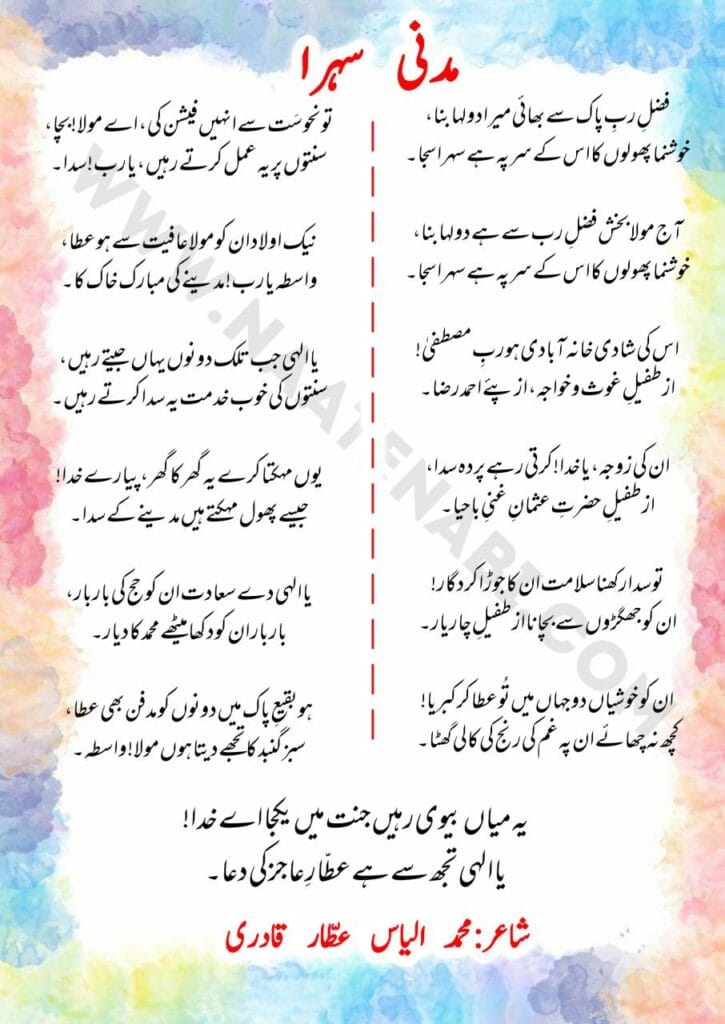 مدنی سہرا
فضلِ ربِ پاک سے بھائی میرا دولہا بنا،
خوشنما پھولوں کا اس کے سر پہ ہے سہرا سجا۔
آج مولا بخش فضلِ رب سے ہے دولہا بنا،
خوشنما پھولوں کا اس کے سر پہ ہے سہرا سجا۔
اس کی شادی خانہ آبادی ہو ربِ مصطفیٰ!
از طفیلِ غوث و خواجہ، از پئے احمد رضا۔
ان کی زوجہ، یا خدا! کرتی رہے پردہ سدا،
از طفیلِ حضرتِ عثمانِ غنیِ باحیا۔
تو سدا رکھنا سلامت ان کا جوڑا کردگار!
ان کو جھگڑوں سے بچانا از طفیلِ چار یار۔
ان کو خوشیاں دو جہاں میں تُو عطا کر کبریا!
کچھ نہ چھائے ان پہ غم کی رنج کی کالی گھٹا۔
تو نحوست سے انہیں فیشن کی، اے مولا! بچا،
سنتوں پر یہ عمل کرتے رہیں، یارب! سدا۔
نیک اولاد ان کو مولا عافیت سے ہو عطا،
واسطہ یارب! مدینے کی مبارک خاک کا۔
یا الٰہی جب تلک دونوں یہاں جیتے رہیں،
سنتوں کی خوب خدمت یہ سدا کرتے رہیں۔
یوں مہکتا کرے یہ گھر کا گھر، پیارے خدا!
جیسے پھول مہکتے ہیں مدینے کے سدا۔
یا الٰہی دے سعادت ان کو حج کی بار بار،
بار بار ان کو دکھا میٹھے محمد کا دیار۔
ہو بقیعِ پاک میں دونوں کو مدفن بھی عطا،
سبز گنبد کا تجھے دیتا ہوں مولا! واسطہ۔
یہ میاں بیوی رہیں جنت میں یکجا اے خدا!
یا الٰہی تجھ سے ہے عطّارِ عاجز کی دعا۔
شاعر: محمد الیاس عطّار قادری
WWW.NAATENABI.COM